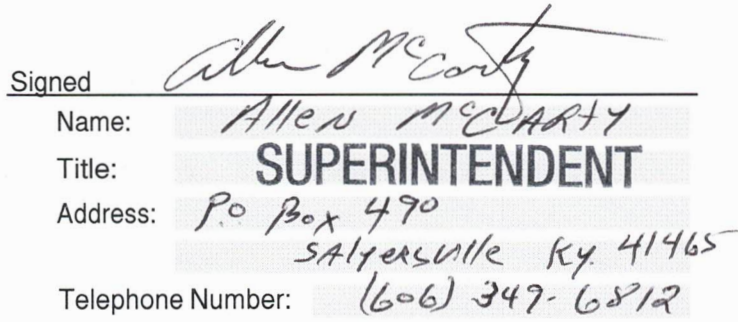 Signed Allen McCarty
Name: Allen McCARTY
Title: SUPERINTENDENT
Address: P.O Box 490
SAlyersville Ky. 41465
Telephone Number: (606) 349-6812